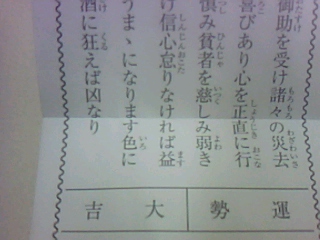 御助を受け諸々の災去
喜びあり心を正直に行
慎み貧者を慈しみ弱き
け信心怠りなければ益
うまゝになります色に
酒に狂えば凶なり
運勢
大吉